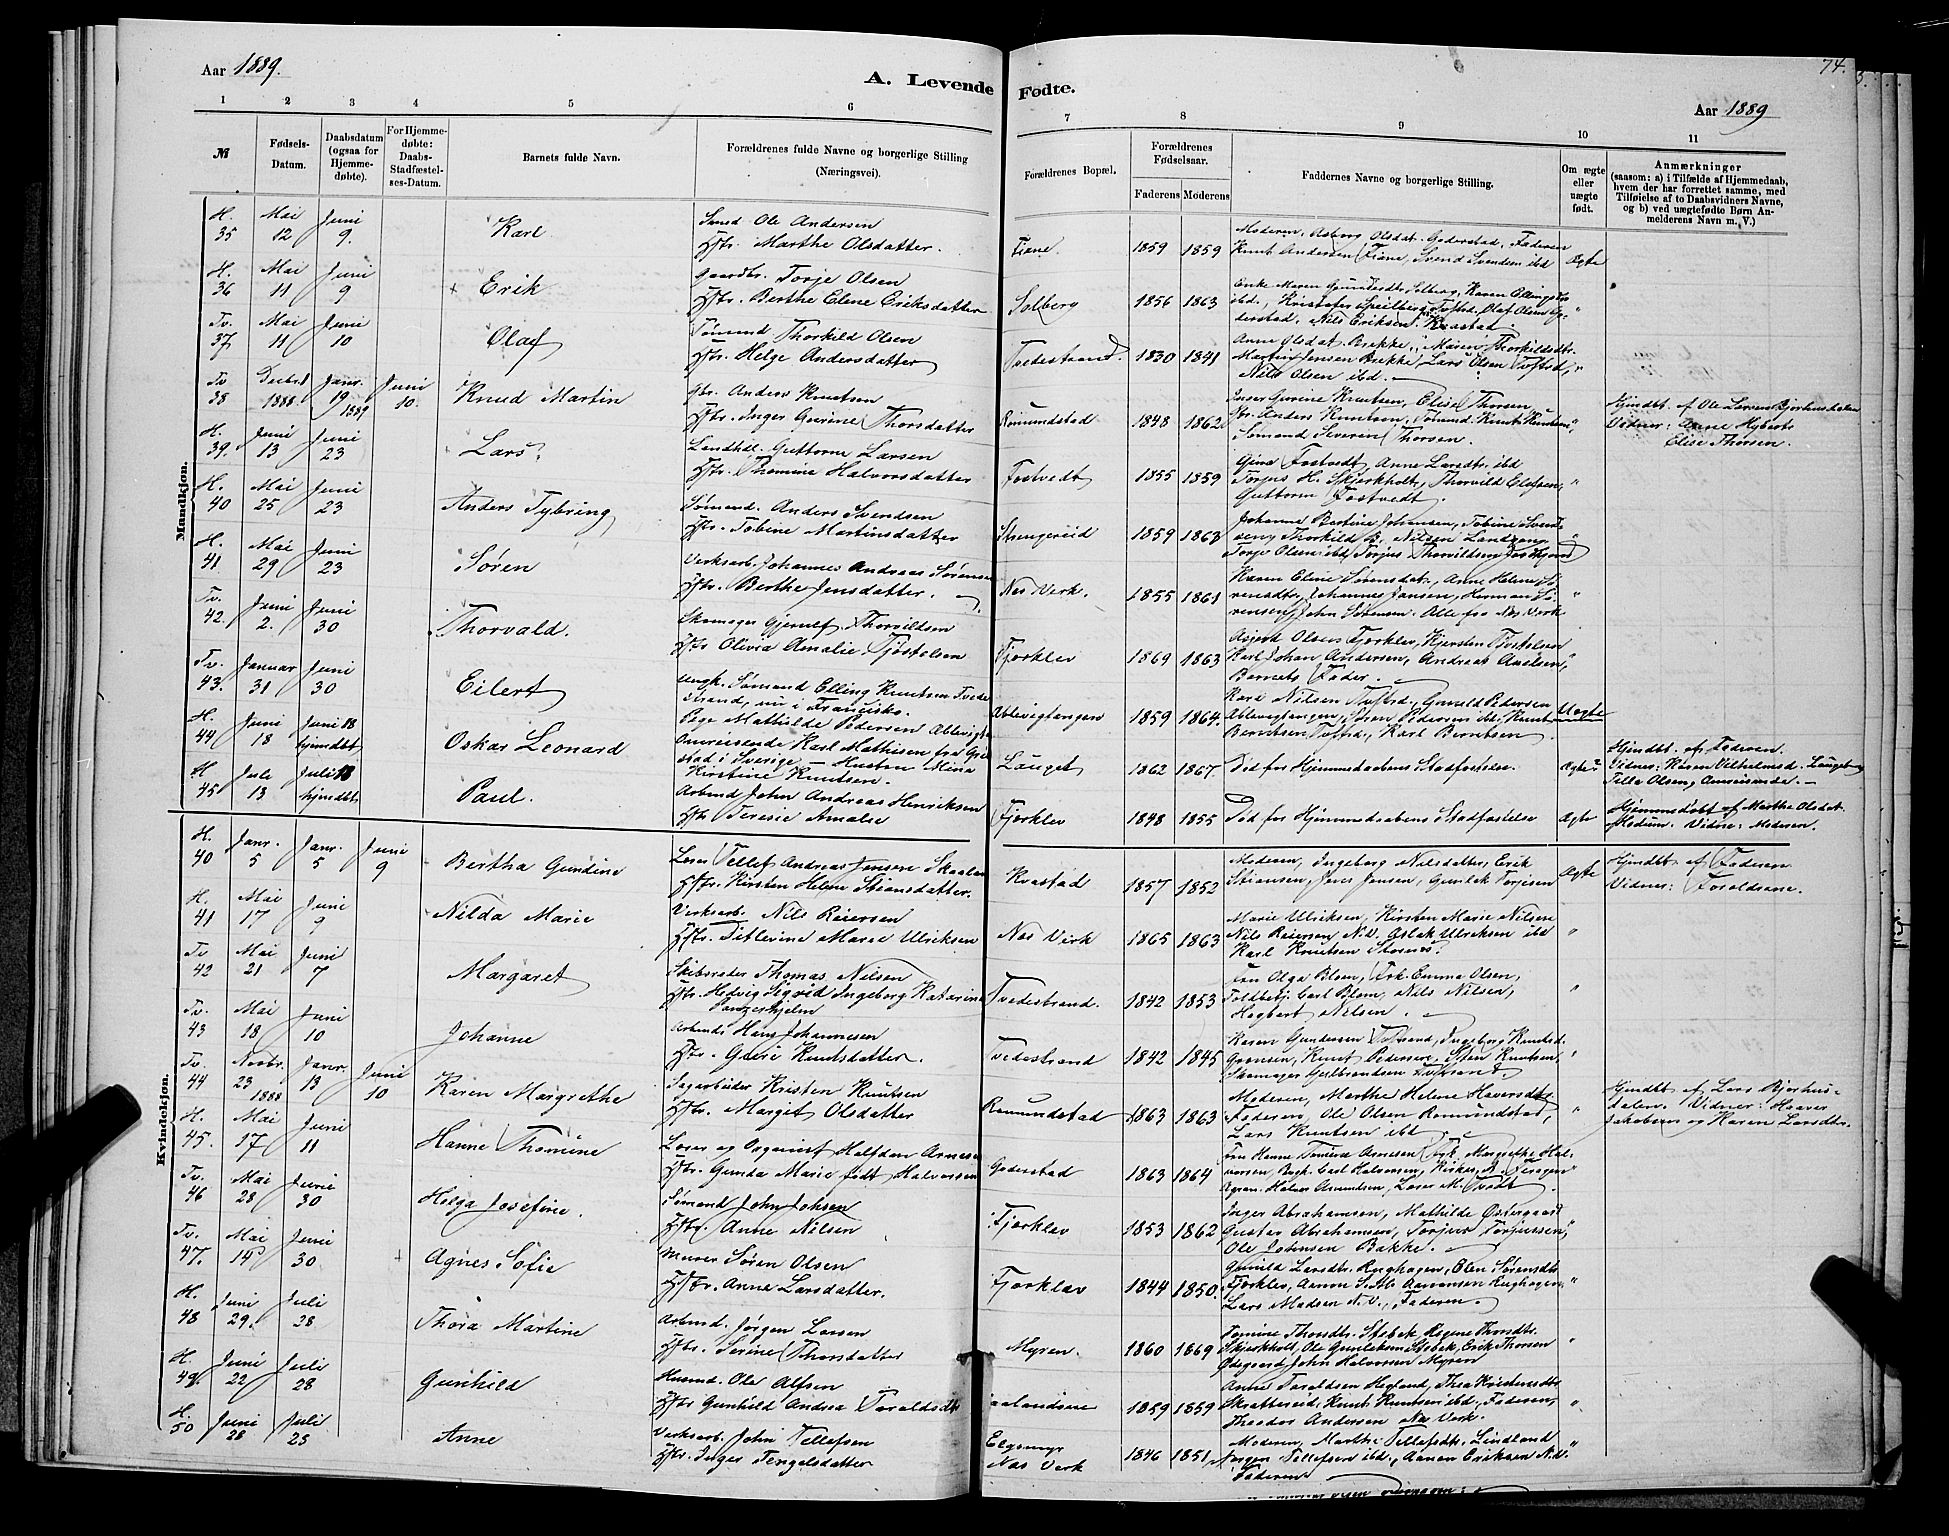 Aar 1889.
A. Levende Fødte.
74.
Aar 1889
1 2 3 4 5 6 7 8 9 10 11
№
Fødsels-Datum.
Daabsdatum (ogsaa for Hjemmedøbte).
For Hjemmedøbte: Daabs-Stadfæstelses-Datum.
Barnets fulde Navn.
Forældrenes fulde Navne og borgerlige Stilling (Næringsvei).
Forældrenes Bopæl.
Forældrenes Fødselsaar.
Faderens Moderens
Faddernes Navne og borgerlige Stilling.
Om ægte eller uægte født.
Anmærkninger
(saasom: a) i Tilfælde af Hjemmedaab, hvem der har forrettet samme, med Tilføielse af to Daabsvidners Navne, og b) ved uægtefødte Børn Anmelderens Navn m. V.)
Mandkjøn.
H. 35 Mai 12 Juni 9. Karl Smed Ole Andersen Hstr. Marthe Olsdatter. Fiane 1859 1859 Moderen, Asborg Olsdat. Goderstad, Faderen Knut Andersen Fiane, Svend Svendsen ibd Ægte
H. 36 Mai 11 Juni 9 Erik Gaardbr. Torje Olsen Hstr. Berthe Elene Eriksdatter Solberg 1856 1863 Nils Eriksen Kvastad "
Tv. 37 Mai 11 Juni 10 Olaf Sømand Thorkild Olsen Hstr. Helge Andersdatter Tvedestrand. 1830 1841 Anne Olsdat. Bakke, Maren Thorkildsdtr. Martin Jensen Bakke, Lars Olsen Nils Olsen ibd. "
Tv 38 Decbr 1888. Janr. 19 1889 Juni 10. Knud Martin Gbr. Anders Knutsen Hstr. Inger Gurine Thorsdatter Romundstad 1848 1862 Elise Thorsen Anders Knutsen, Sømand Knut Knutsen, Sømand Severin Thorsen. " Hjmdbt. af Ole Larsen Bjorhusdalen Vidner: Anne Elise Thorsen.
H. 39. Juni 13 Juni 23 Lars. Landhdl. Guttorm Larsen Hstr. Thomine Halvorsdatter Fostvedt 1855 1859 Gina Fostvedt, Anne Larsdtr. ibd Torjus H. Skjerkholt, Thorvild Olafsen, Guttorm Fostvedt. "
H. 40 Mai 25 Juni 23 Anders Tybring Sømand. Anders Svendsen Hstr. Tobine Martinsdatter Strengereid 1859 1863 Johanne Bertine Johansen, Tobine Svendsen, Thorkild B. Nilsen Torje Olsen ibd Torjus Thorvildsen "
H. 41 Mai 29 Juni 23 Søren Verksarb. Johannes Andreas Sørensen Hstr. Berthe Jensdatter. Nes Verk. 1855 1861 Karen Elene Sørensdat., Anne Helene Sørensdtr, Johannes Jansen, Herman Sørensen, John Sørensen. Alle fra Nes Verk "
Tv. 42. Juni 2. Juni 30 Thorvald. Skomager Gjerulf Thorvildsen Hstr Olivia Amalie Tjøstelsen Fjerklev 1869 1863 Olsen Fjerklev, Kjersten Tjøstelsen Karl Johan Andersen, Andreas Axelsen, Barnets Fader. "
Tv. 43. Januar 31 Juni 30 Eilert ungk. Sømand Elling Knutsen Tvedestrand, nu i Francisko. Pige Mathilde Pedersen Ablevigt. Ablevigtangen 1859 1864. Nilsen Gunild Pedersen Ablevigtangen, Søren Pedersen ibd, Knut Berntsen Karl Berntsen. Uægte
H. 44 Juni 18 Juni 18 hjmdbt Oskar Leonard Omreisende Karl Mathisen fra stad i Sverige – Hustru Mina Kirstine Knutsen. Lauget 1862 1867. Død før Hjemmedaabens Stadfæstelse. Ægte Hjmdbt. af Faderen. Vidner: Karen Vilhelmsd. Tilla Olsen, Omreisende. –
H 45 Juli 13 Juli 18 hjmdbt Paul. Arbmd John Andreas Henriksen Hstr Teresie Amalie Fjerklev 1848 1855 Død før Hjemmedaabens Stadfæstelse Ægte Hjemmedøbt af Marthe Olsdat. Modum. Vidne: Moderen.
Kvindekjøn.
H. 40 Janr. 5 Janr. 5 Juni 9 Bertha Gundine Loser Tellef Andreas Jensen Skaalen Hstr. Kirsten Helene Stiansdatter. Kvastad 1857 1852 Moderen, Ingeborg Nilsdatter, Erik Stiansen, Jens Jensen, Gunlek Torjesen Ægte Hjmdbt. af Faderen Vidner: Forældrene.
H. 41 Mai 17 Juni 9 Nilda Marie Verksarb. Nils Reiersen Hstr. Titlevine Marie Ulriksen Nes Verk 1865 1863 Marie Ulriksen, Kirsten Marie Nilsen Nils Reiersen N.V. Aslak Ulriksen ibd Karl Knutsen "
Tv 42 Mai 21 Juni 7 Margaret Skibsreder Thomas Nilsen Hstr. Hedvig Sigvid Ingeborg Katarine Tvedestrand. 1842 1853 Fru Olga Blom, Frk. Emma Olsen, Toldbetj. Carl Blom, Nils Nilsen, Hagbart Nilsen. "
Tv. 43 Mai 18 Juni 10 Johanne Arbmd. Hans Johannesen Hstr. Gurie Knutsdatter. Tvedestrand 1842 1845 Karen Gundersen Ingeborg Knutsd. Knut Pedersen, Sten Knutsen, Skomager Gulbrandsen "
Tv. 44 Novbr. 23 1888 Janr. 13 Juni 10 Karen Margrethe Sagarbeider Kristen Knutsen Hstr. Margit Olsdatter Romundstad 1863 1863 Moderen, Marthe Helene Haversdtr Faderen, Ole Olsen Romundstad, Lars Knutsen ibd " Hjmdbt af Lars Bjorhusdalen. Vidner: Haaver Jakobsen og Karen Larsdtr.
H. 45. Mai 17 Juni 11 Hanne Thomine Lærer og Organist Halfdan Arnesen Hstr. Gunda Marie født Halvorsen Goderstad 1863 1864 Fru Hanne Tomine Arnesen Frk. Margrethe Halvorsen, Ungk. Carl Halvorsen, "
Tv. 46 Mai 28 Juni 30 Helga Josefine. Sømand John Johsen Hstr. Anne Nilsen Fjerklev 1853 1862 Inger Abrahamsen, Mathilde Østergaard Gustav Abrahamsen, Torjus Torjussen, Ole Johnsen Bakke. "
Tv. 47. Mai 14 Juni 30 Agnes Sofie Murer Søren Olsen Hstr. Anne Larsdatter. Fjerklev 1844 1850. Gunild Larsdtr. Elen Sørensdtr Fjerklev, Aanon Lars Madsen N.V., Faderen. "
H. 48 Juni 29. Juli 28 Thora Martine Arbmd. Jørgen Larsen Hstr. Serine Thorsdatter Myren. 1860 1869 Tomine Thorsdtr. Stebek, Regine Thorsdtr. Skjerkholt, Ole Gunleksen Stebek, Erik Thorsen Ødegaard, John Halvorsen Myren "
H. 49. Juni 22 Juli 28 Gunhild Husmd. Ole Alfsen Hstr Gunhild Andrea Toraldsdtr 1859 1859 Anne Toraldsen Hegland, Thea Kristensdtr Skottereid, Knut Knutsen ibd, Faderen, Theodor Andersen Nes Verk. "
H. 50 Juni 28 Juli 28 Anne Verksarb. John Tellefsen Hstr. Inger Tengelsdatter Nes Verk 1846 1851 Moderen, Marthe Tellefsdtr. Lindland Jørgen Tellefsen ibd., Aanon Eriksen N.V. Faderen "